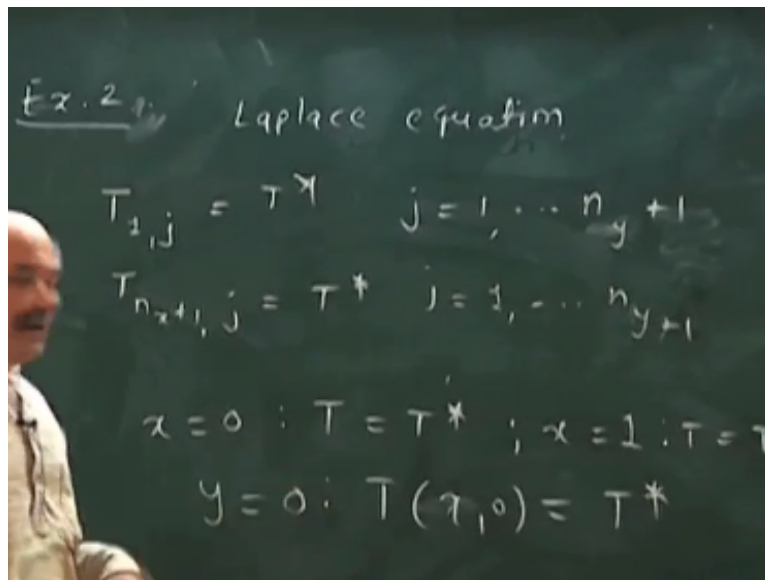 Ex. 2. Laplace equation
T_{1,j} = T* j = 1, ... n_y + 1
T_{n_x+1, j} = T* j = 1, ... n_{y+1}
x = 0 : T = T* ; x = 1 : T = T
y = 0 : T(x,0) = T*